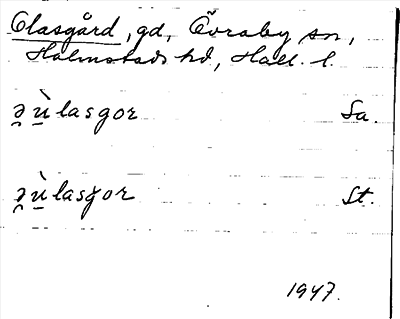 Olasgård, gd, Övraby sn,
Halmstads hd, Hall. l.
ə̯ùlasgor Sa.
ə̯ùlasgor St.
1947.